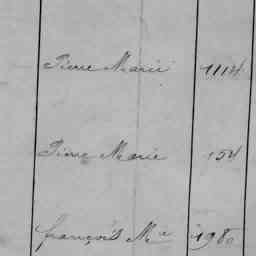 Pierre Marie 1114
Pierre Marie 154
françois Mie 1980